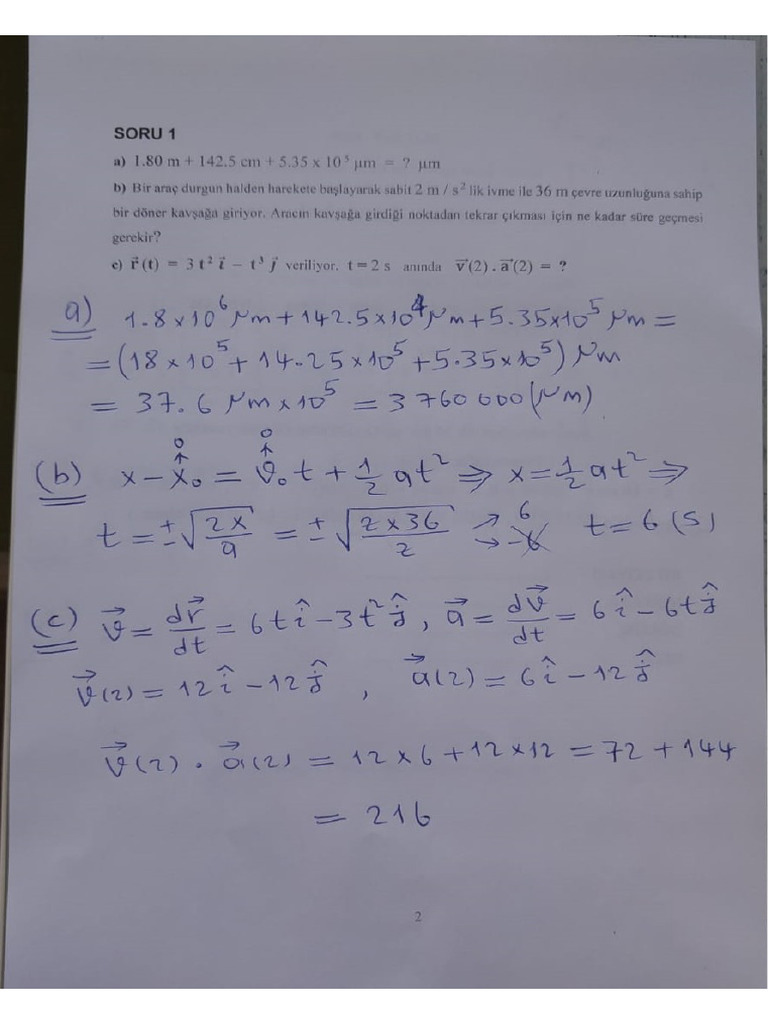 SORU 1
a) 1.80 m + 142.5 cm + 5.35 x 10⁵ μm = ? μm
b) Bir araç durgun halden harekete başlayarak sabit 2 m / s² lik ivme ile 36 m çevre uzunluğuna sahip
bir döner kavşağa giriyor. Aracın kavşağa girdiği noktadan tekrar çıkması için ne kadar süre geçmesi
gerekir?
c) r⃗(t) = 3 t² i⃗ − t³ j⃗ veriliyor. t = 2 s anında v⃗(2) . a⃗(2) = ?
a) 1.8×10⁶ μm + 142.5×10⁴ μm + 5.35×10⁵ μm =
= (18×10⁵ + 14.25×10⁵ + 5.35×10⁵) μm
= 37.6 μm×10⁵ = 3760000 (μm)
(b) x − x₀↑0 = v₀↑0 t + 1/2 at² ⇒ x = 1/2 at² ⇒
t = ±√(2x/a) = ±√(2×36/2) → 6 → −6 t = 6 (s)
(c) v⃗ = dr⃗/dt = 6t î − 3t² ĵ, a⃗ = dv⃗/dt = 6î − 6t ĵ
v⃗(2) = 12î − 12ĵ , a⃗(2) = 6î − 12ĵ
v⃗(2) . a⃗(2) = 12×6 + 12×12 = 72 + 144
= 216
2